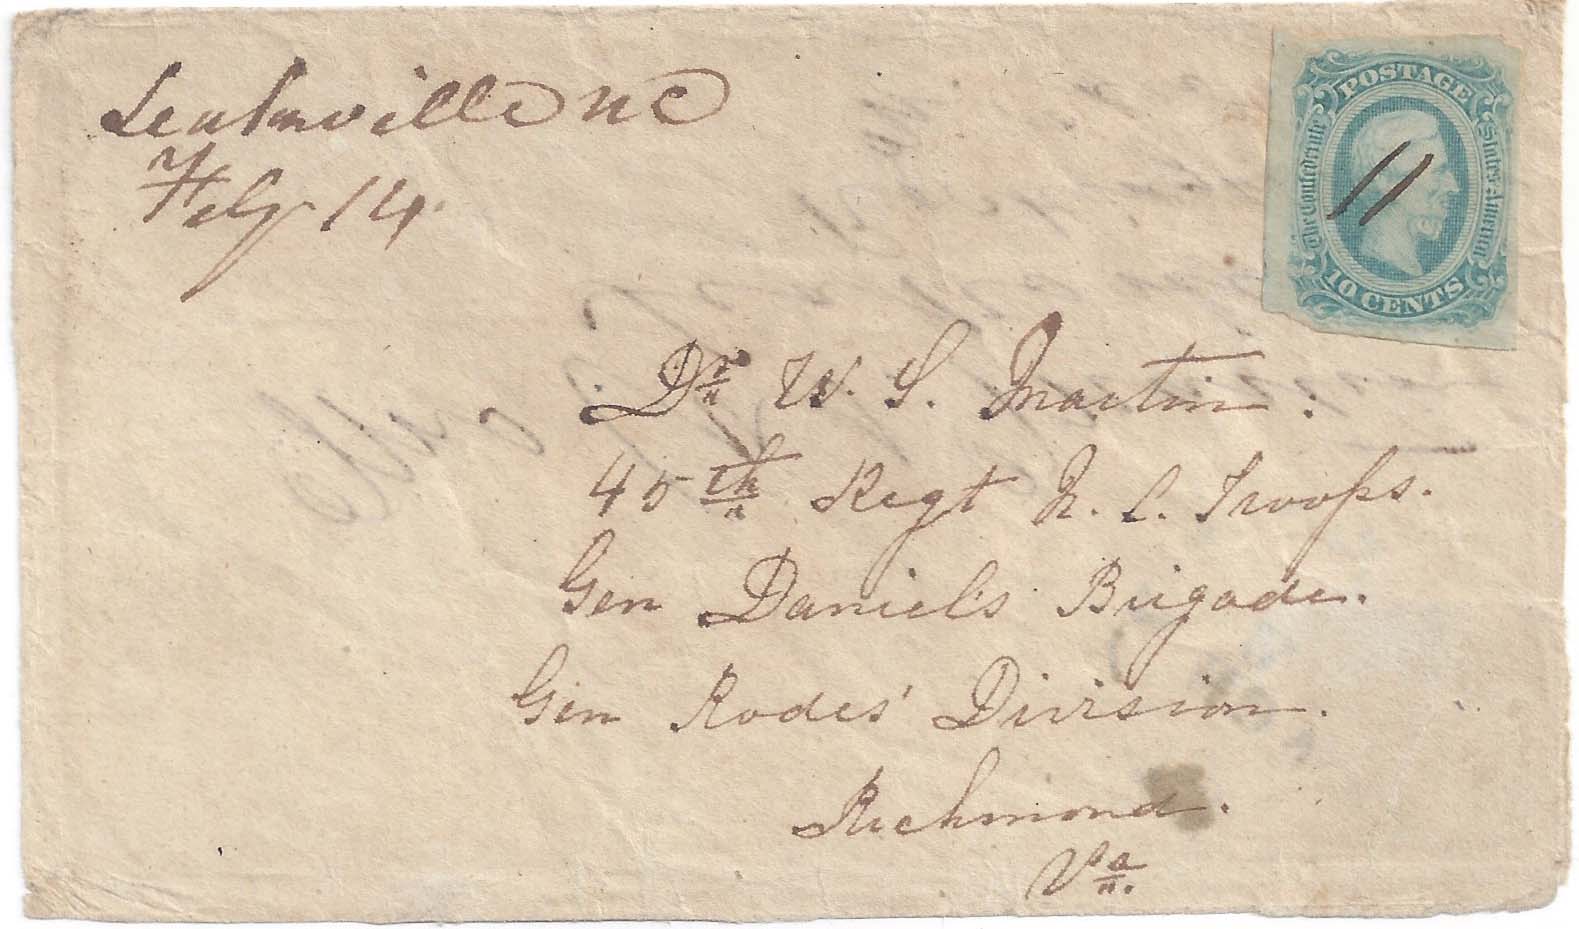 Leaksville NC
Feby 14
POSTAGE
The Confederate States America
10 CENTS
Dr W. S. Martin.
45th Regt N. C. Troops.
Gen Daniel's Brigade.
Gen Rodes' Division.
Richmond.
Va.